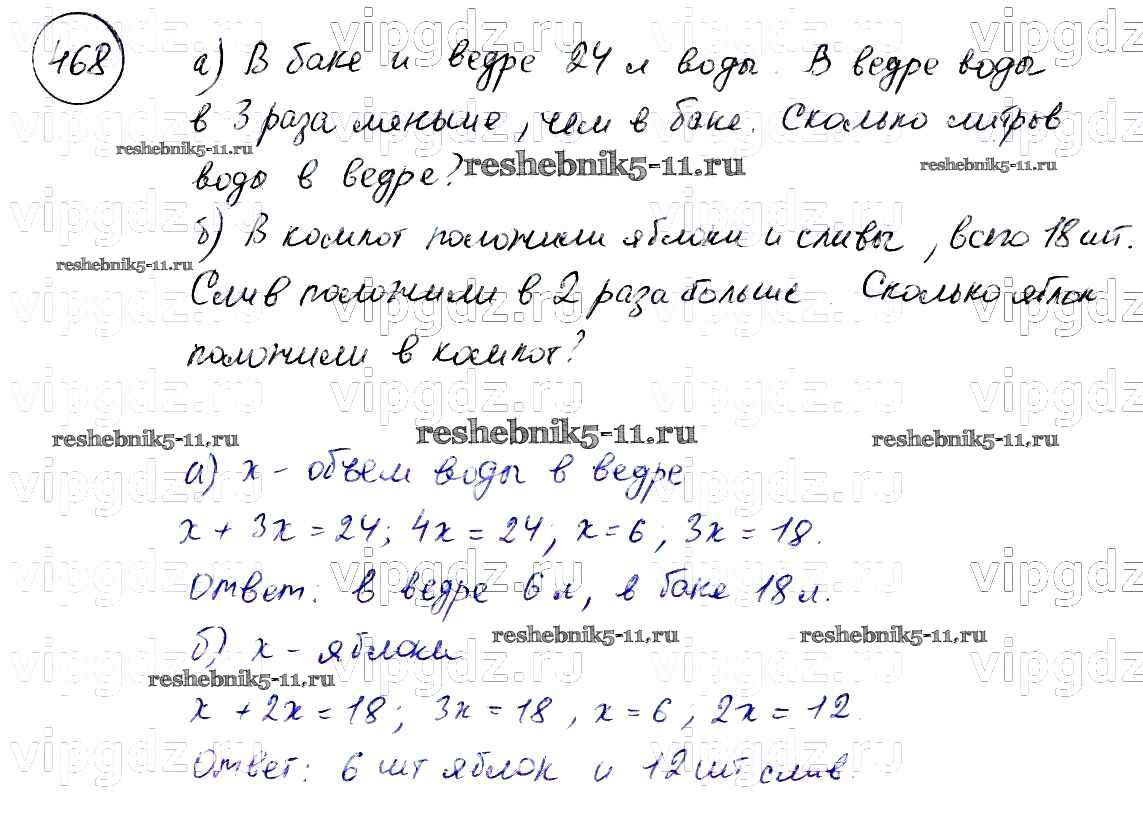 468
а) В баке и ведре 24 л воды. В ведре воды
в 3 раза меньше, чем в баке. Сколько литров
воды в ведре?
б) В компот положили яблоки и сливы, всего 18 шт.
Слив положили в 2 раза больше. Сколько яблок
положили в компот?
а) x - объем воды в ведре
x + 3x = 24; 4x = 24; x = 6; 3x = 18.
Ответ: в ведре 6 л, в баке 18 л.
б) x - яблоки
x + 2x = 18; 3x = 18, x = 6; 2x = 12.
Ответ: 6 шт яблок и 12 шт слив.
vipgdz.ru
reshebnik5-11.ru